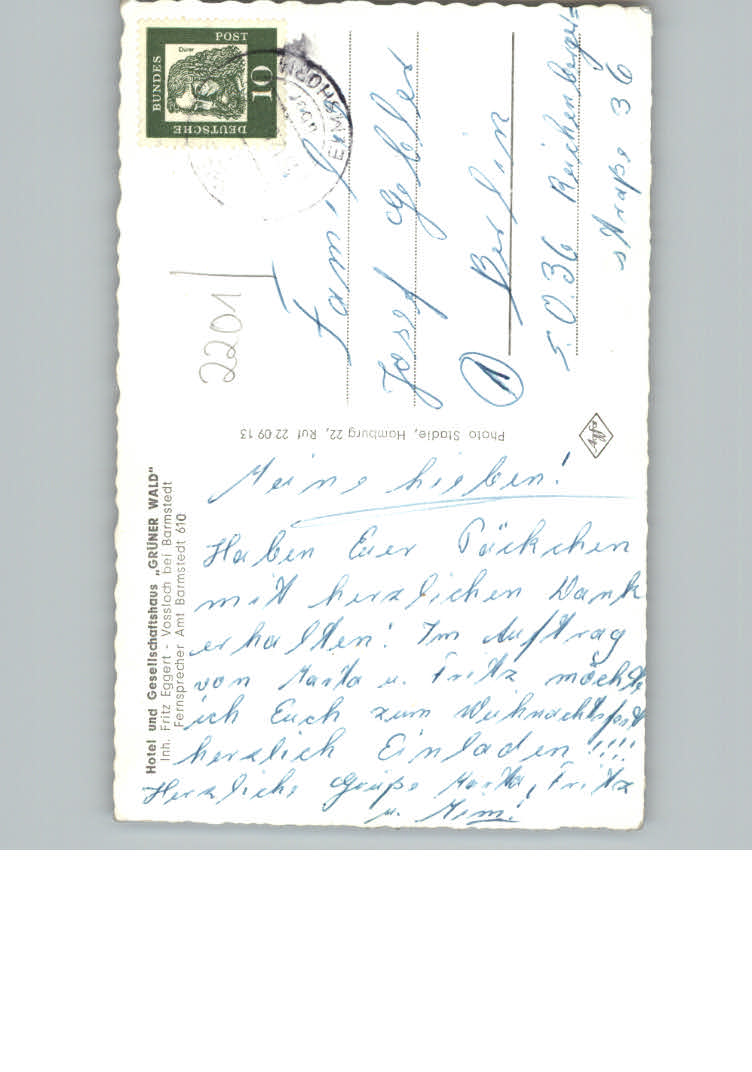 Hotel und Gesellschaftshaus „GRÜNER WALD"
Inh. Fritz Eggert - Vossloch bei Barmstedt
Fernsprecher Amt Barmstedt 610
Meine Lieben!
Haben Euer Päckchen
mit herzlichen Dank
erhalten! Im Auftrag
von Marta u. Fritz möchte
ich Euch zum Weihnachtsfest
herzlich Einladen!!!!
Herzliche Grüße Marta, Fritz
u.
Photo Stadie, Hamburg 22, Ruf 22 09 13
Agfa
DEUTSCHE
BUNDES
POST
Dürer
10
ELMSHORN
2201
Fam.
Josef
Berlin
1
S.O. 36 Reichenberger=
straße 36